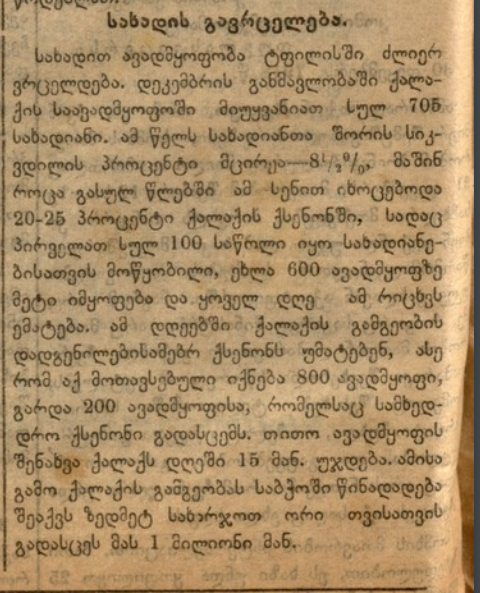 სახადის გავრცელება.
სახადით ავადმყოფობა ტფილისში ძლიერ
ვრცელდება. დეკემბრის განმავლობაში ქალა-
ქის საავადმყოფოში მიუყვანიათ სულ 705
სახადიანი. ამ წელს სახადიანთა შორის სიკ-
ვდილის პროცენტი მცირეა—8½%, მაშინ
როცა გასულ წლებში ამ სენით იხოცებოდა
20-25 პროცენტი ქალაქის ქსენონში, სადაც
პირველათ სულ 100 საწოლი იყო სახადიანე-
ბისათვის მოწყობილი, ეხლა 600 ავადმყოფზე
მეტი იმყოფება და ყოველ დღე ამ რიცხვს
ემატება. ამ დღეებში ქალაქის გამგეობის
დადგენილებისამებრ ქსენონს უმატებენ, ასე
რომ აქ მოთავსებული იქნება 800 ავადმყოფი,
გარდა 200 ავადმყოფისა, რომელსაც სამხედ-
დრო ქსენონი გადასცემს. თითო ავადმყოფის
შენახვა ქალაქს დღეში 15 მან. უჯდება. ამისა
გამო ქალაქის გამგეობას საბჭოში წინადადება
შეაქვს ზედმეტ სახარჯოთ ორი თვისათვის
გადასცეს მას 1 მილიონი მან.